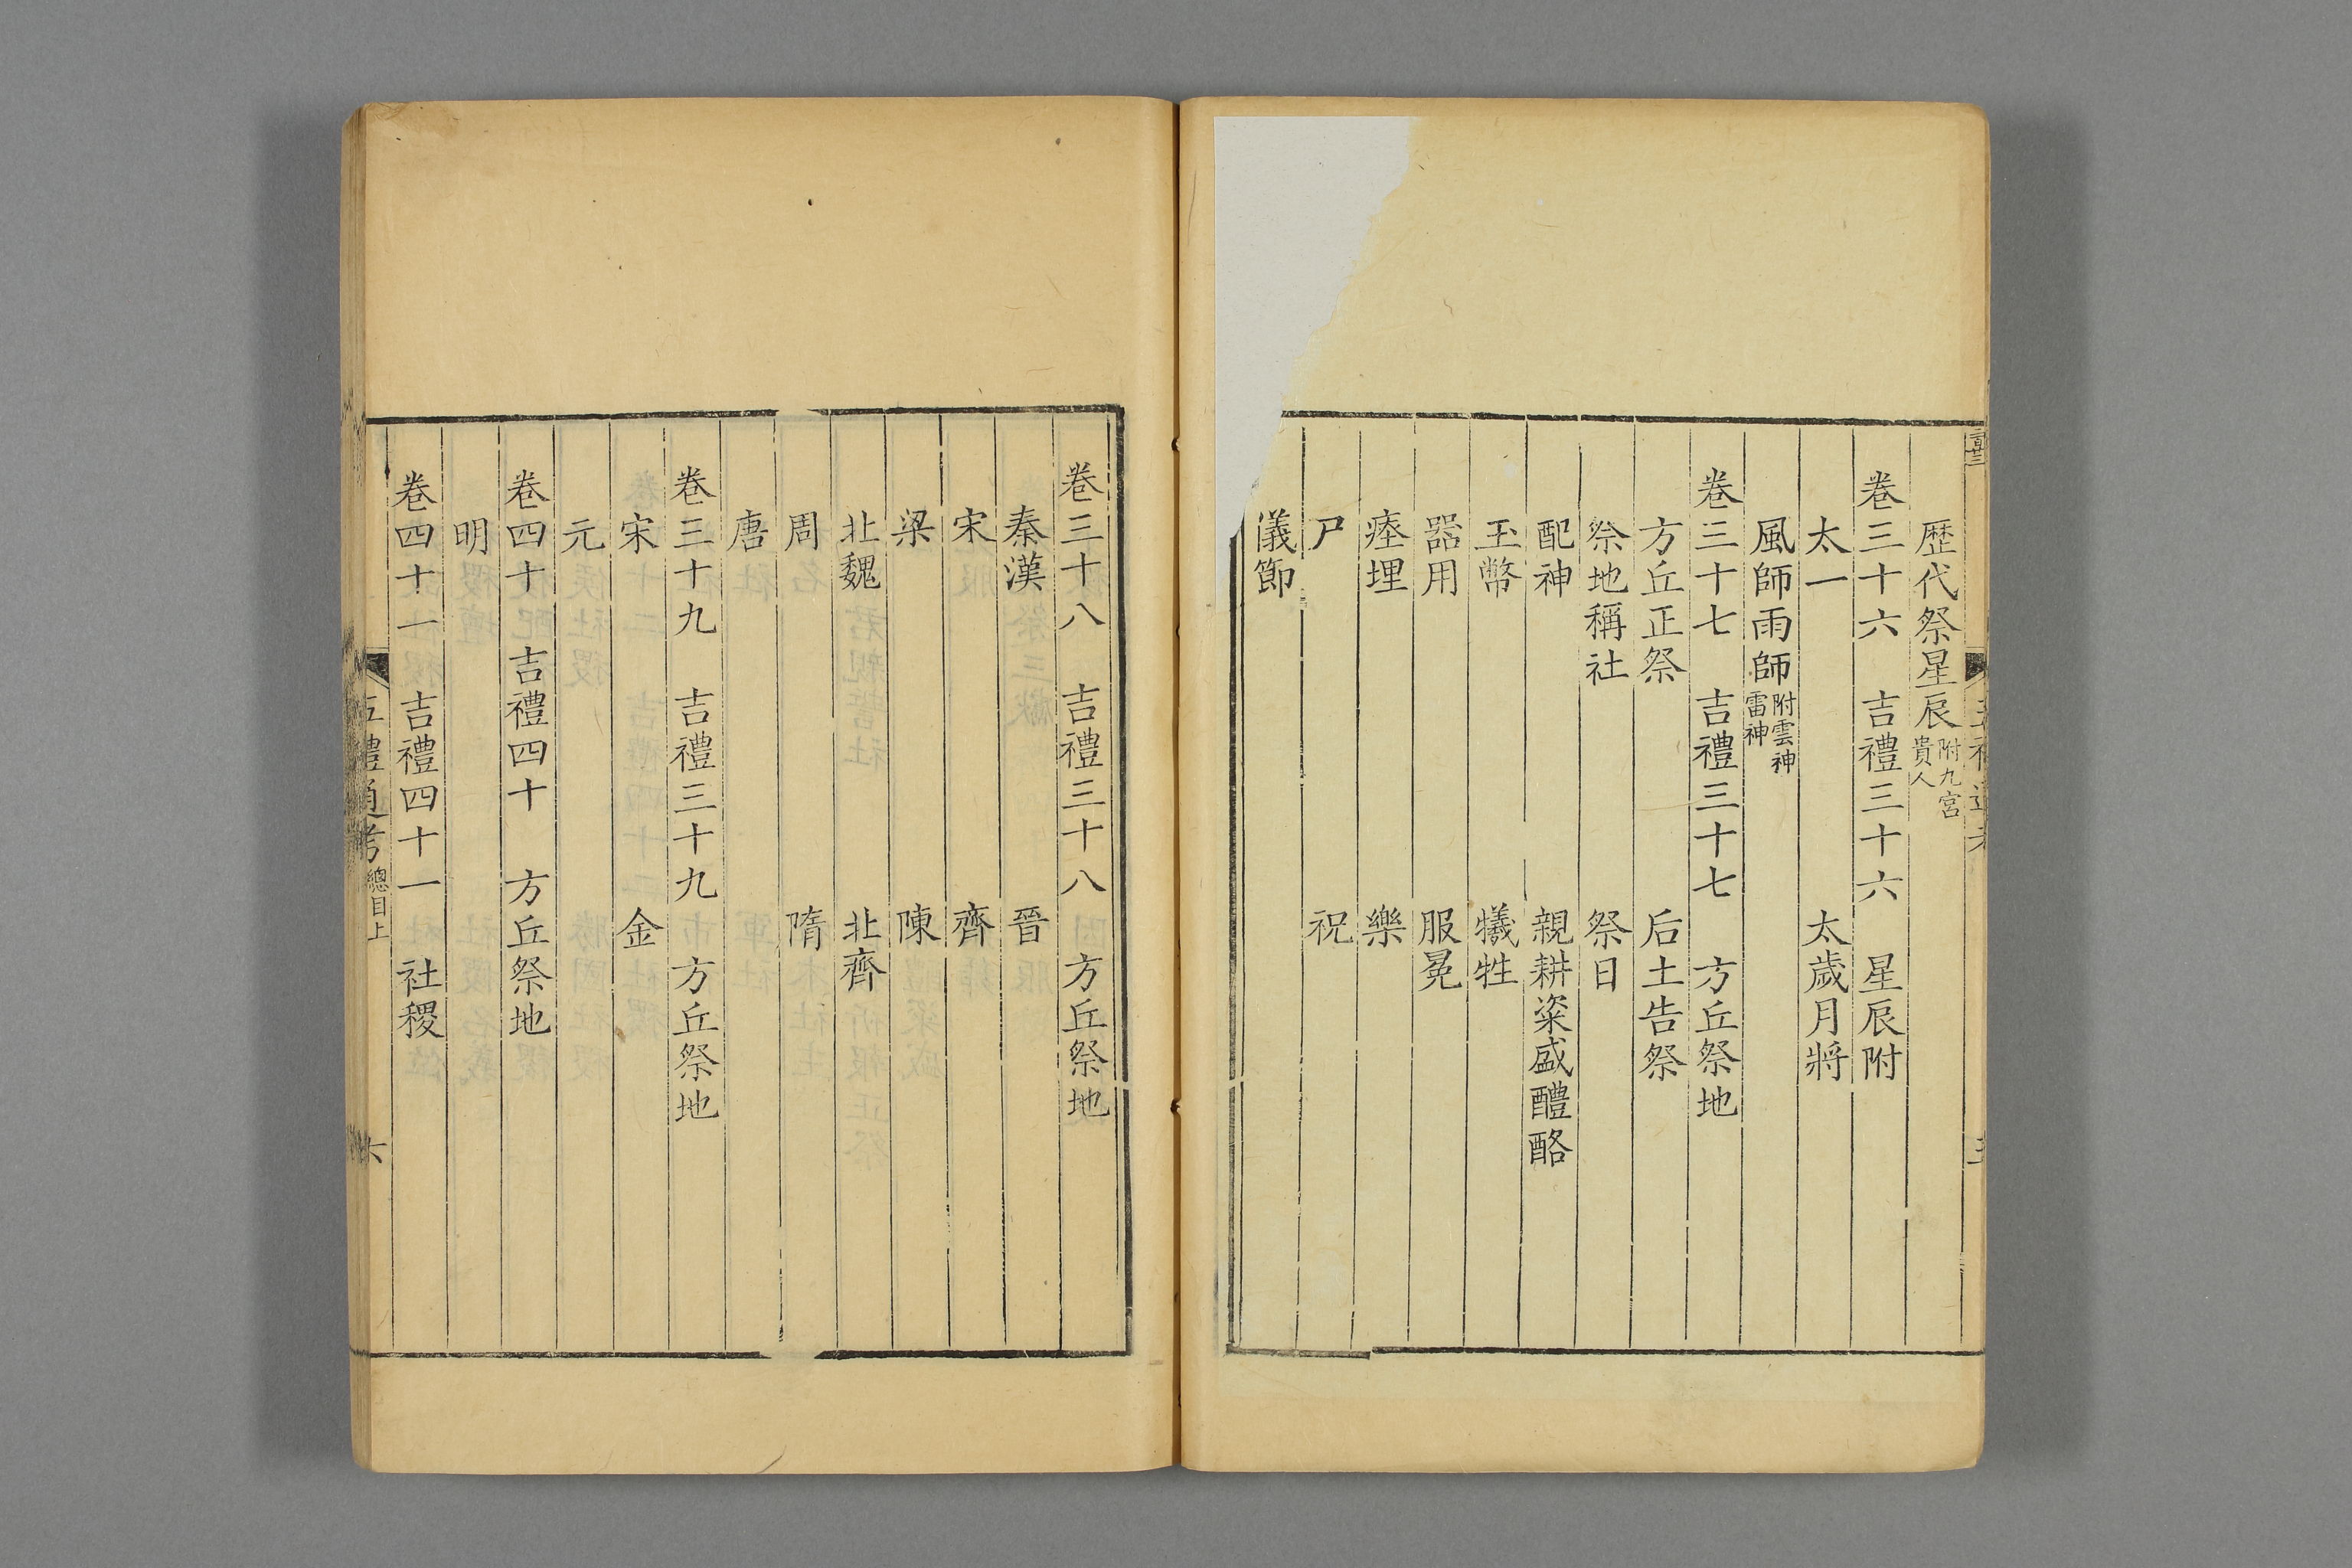 歷代祭星辰附九宮貴人
卷三十六 吉禮三十六 星辰附
太一 太歲月將
風師雨師附雲神雷神
卷三十七 吉禮三十七 方丘祭地
方丘正祭 后土告祭
祭地稱社 祭日
配神 親耕粢盛醴酪
玉幣 犧牲
器用 服冕
瘞埋 樂
尸 祝
儀節
卷三十八 吉禮三十八 方丘祭地
秦漢 晉
宋 齊
梁 陳
北魏 北齊
周 隋
唐
卷三十九 吉禮三十九 方丘祭地
宋 金
元
卷四十 吉禮四十 方丘祭地
明
卷四十一 吉禮四十一 社稷
五禮通考 總目上 六